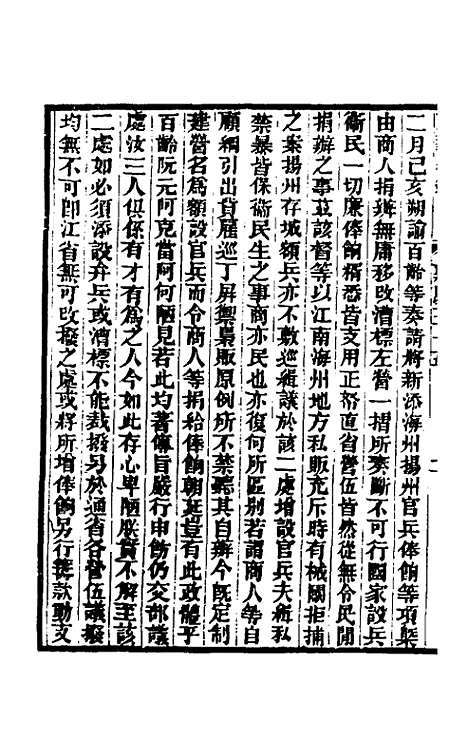 二月己亥朔諭百齡等奏請將新添海州揚州官兵俸餉等項槩
由商人捐辦無庸移改漕標左營一摺所奏斷不可行國家設兵
衞民一切廉俸餉糈悉皆支用正帑直省營伍皆然從無令民間
捐辦之事茲該督等以江南海州地方私販充斥時有械鬭拒捕
之案揚州存城額兵亦不敷巡緝議於該二處增設官兵夫緝私
禁暴皆保衞民生之事商亦民也亦復何所區別若謂商人等自
顧綱引出貲雇巡丁屏禦梟販原例所不禁聽其自辦今旣定制
建營名爲額設官兵而令商人等捐給俸餉朝廷豈有此政體乎
百齡阮元阿克當阿何陋見若此均著傳旨嚴行申飭仍交部議
處汝三人俱係有才有爲之人今如此存心卑陋朕實不解至該
二處如必須添設弁兵或漕標不能裁撥另於通省各營伍議撥
均無不可卽江省無可改撥之處或將所增俸餉另行籌款動支